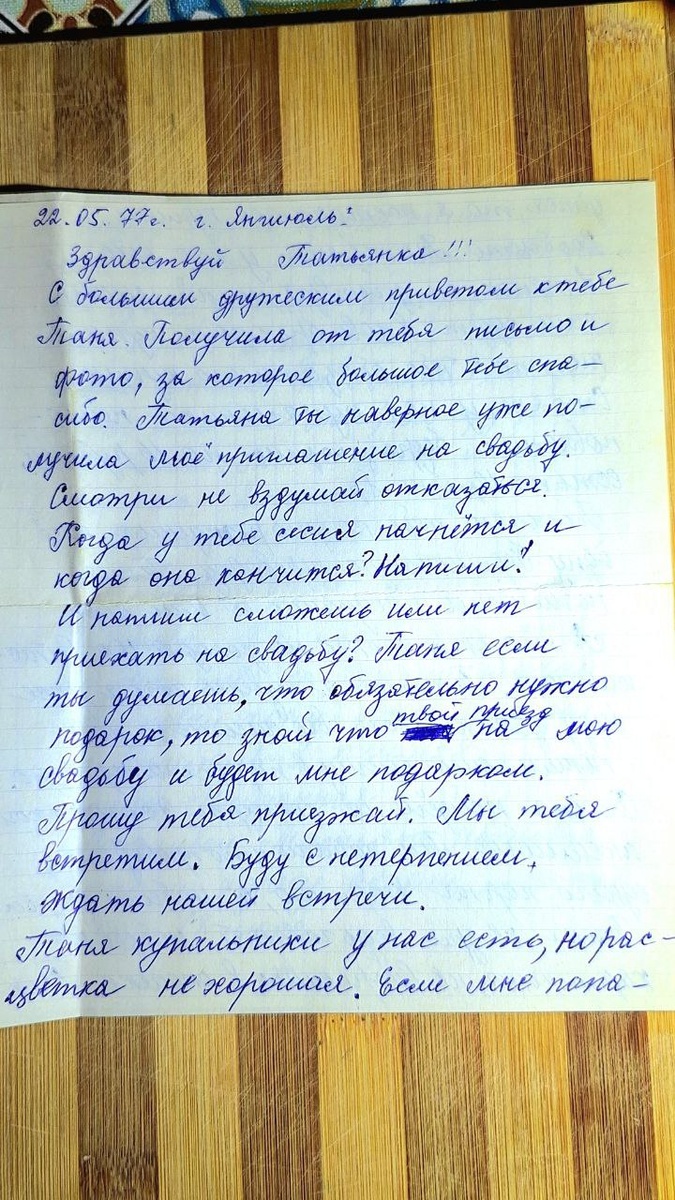 22.05.77г. г. Янгиюль.
Здравствуй Татьянка!!!
С большим дружеским приветом к тебе
Таня. Получила от тебя письмо и
фото, за которое большое тебе спа-
сибо. Татьяна ты наверное уже по-
лучила моё приглашение на свадьбу.
Смотри не вздумай отказаться.
Когда у тебе сесия начнётся и
когда она кончится? Напиши!
И напиши сможешь или нет
приехать на свадьбу? Таня если
ты думаешь, что обязательно нужно
подарок, то знай что твой приезд на мою
свадьбу и будет мне подарком.
Прошу тебя приезжай. Мы тебя
встретим. Буду с нетерпением,
ждать нашей встречи.
Таня купальники у нас есть, но рас-
цветка не хорошая. Если мне попа-